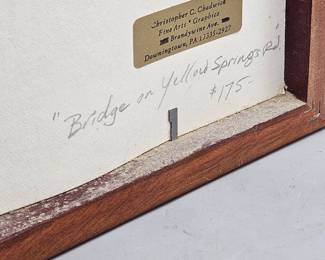 Christopher C. Chadwick
Fine Arts • Graphics
Brandywine Ave.
Downingtown, PA 13335-2927
"Bridge on Yellow Springs Rd."
$175-